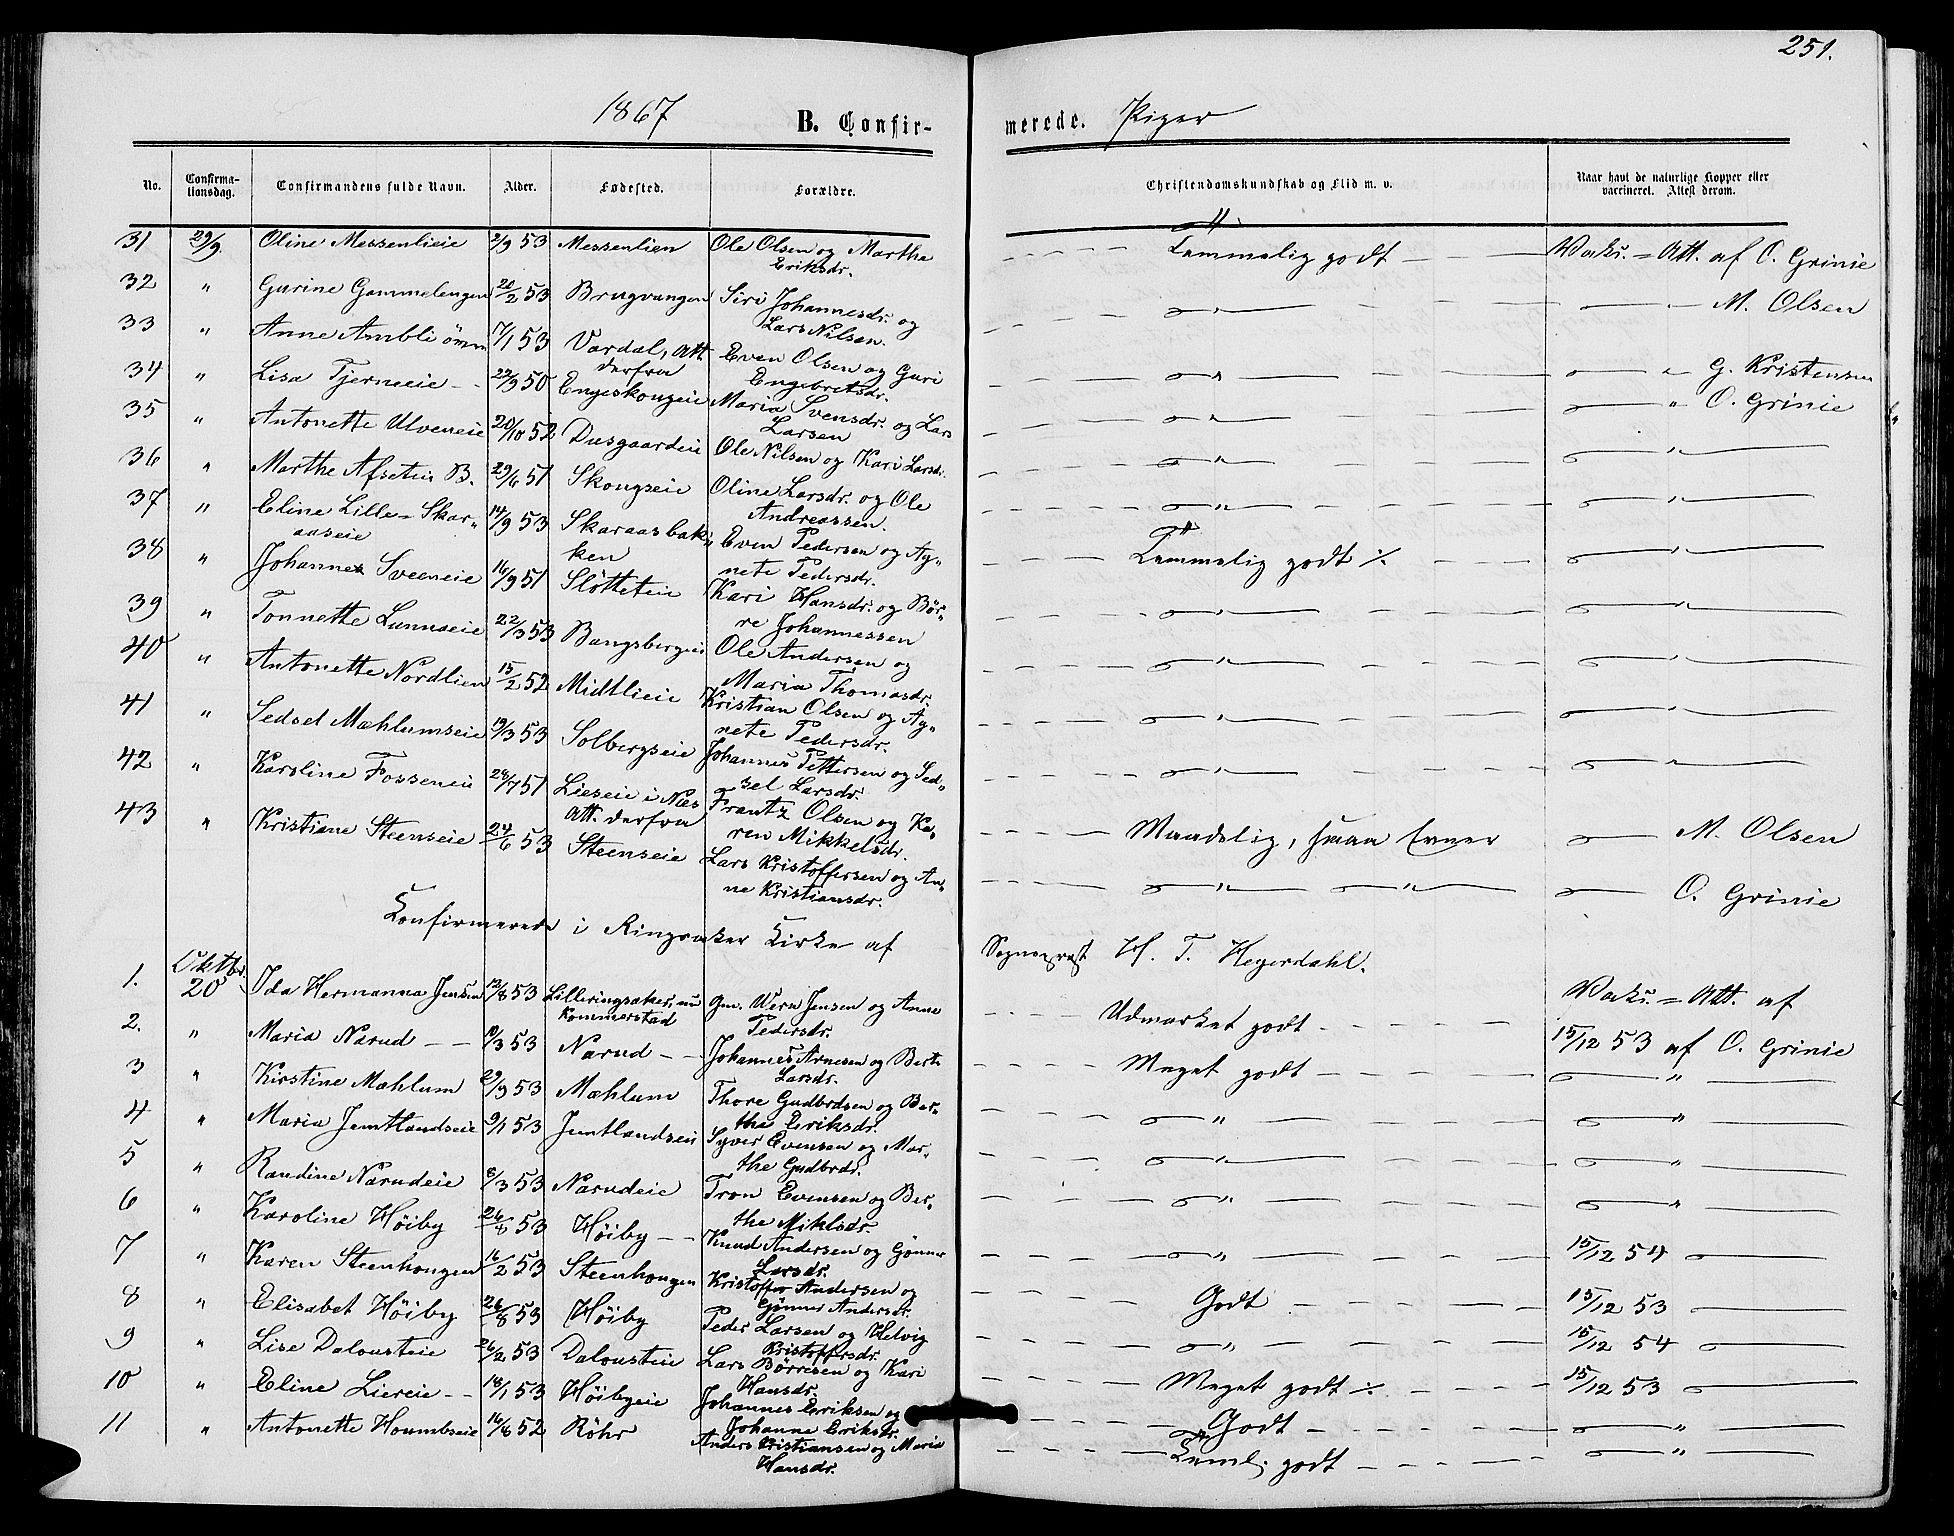 251.
1867 B. Confir- merede. Piger
No. Confirma-tionsdag. Confirmandens fulde Navn. Alder. Fødested. Forældre. Christendomskundskab og Flid m. v. Naar havt de naturlige Kopper eller vaccineret. Attest derom.
31 29/9. Oline Messenlieie 2/9 53 Messenlien Ole Olsen og Marthe Eriksdr. Temmelig godt Vaks. = Att. af O. Grinie
32 " Gurine Gammelengen 20/2 53 Brugvangen Siri Johannesdr. og Lars Nilsen. " " M. Olsen
33 " Anne Ambli 17/1 53 Vardal, Att. derfra Even Olsen og Guri Engebretsdr. " " G. Kristensen
34 " Lisa Tjerneeie 29/9 50 Engeskougeie Maria Svensdr. og Lars Larsen " " O. Grinie
35 " Antonette Ulveneie 20/10 52 Dusgaardeie Ole Nilsen og Kari Larsdr. " "
36 " Marthe Afseteie B. 29/6 51 Skougseie Oline Larsdr. og Ole Andreassen. " "
37 " Eline Lille-Skar-aaseie 14/9 53 Skaraasbak-ken Even Pedersen og Ag-nete Pedersdr. Temmelig godt ./. "
38 " Johanne Sveeneie 16/9 51 Slötteteie Kari Hansdr. og Bör-re Johannessen " "
39 " Tonnette Lunnseie 22/3 53 Bangsbergeie Ole Andersen og Maria Thomasdr. " "
40 " Antonette Nordlien 15/2 52 Midtlieie Kristian Olsen og Ag-nete Pedersdr. " "
41 " Sedsel Mæhlumseie 19/3 53 Solbergseie Johannes Pettersen og Sed-sel Larsdr. " "
42 " Karoline Fosseneie 28/7 51 Lieseie i Næs Att. derfra Frantz Olsen og Ka-ren Mikkelsdr. Maadelig, smaa Evner M. Olsen
43 " Kristiane Steenseie 24/6 53 Steenseie Lars Kristoffersen og An-ne Kristiansdr. " " O. Grinie
Konfirmerede i Ringsaker Kirke af Sogneprest H. T. Heyerdahl.
1. Oktbr. 20 Ida Hermanna Jensen 12/8 53 Lilleringsaker, nu Kommerstad Gm. Wern Jensen og Anne Pedersdr. Udmærket godt Vaks. = Att. af 15/12 53 af O. Grinie
2. " Maria Narud 10/3 53 Narud Johannes Arnesen og Berte Larsdr. Meget godt "
3 " Kirstine Mæhlum 29/9 53 Mæhlum Thore Gudbrdsen og Ber-the Eriksdr. " "
4 " Maria Jemtlandseie 9/1 53 Jemtlandseie Syver Evensen og Mar-the Gudbrdr. " "
5 " Randine Narudeie 8/3 53 Narudeie Tron Evensen og Ber-the Miklsdr. " "
6 " Karoline Höiby 26/8 53 Höiby Knud Andersen og Gönner Larsdr. " 15/12 54
7 " Karen Steenhougen 16/2 53 Steenhougen Kristoffer Andersen og Gönner Andersdr. Godt 15/12 53
8 " Elisabet Höiby 26/8 53 Höiby Peder Larsen og Helvig Kristoffersdr. " 15/12 54
9 " Lise Dalousteie 26/2 53 Dalousteie Lars Börresen og Kari Hansdr. Meget godt ./. 15/12 53
10 " Eline Liereie 18/1 53 Höibyeie Johannes Eriksen og Johanne Eriksdr. Godt "
11 " Antonette Houmbseie 16/6 52 Röhr Anders Kristiansen og Maria Hansdr. Teml. godt "